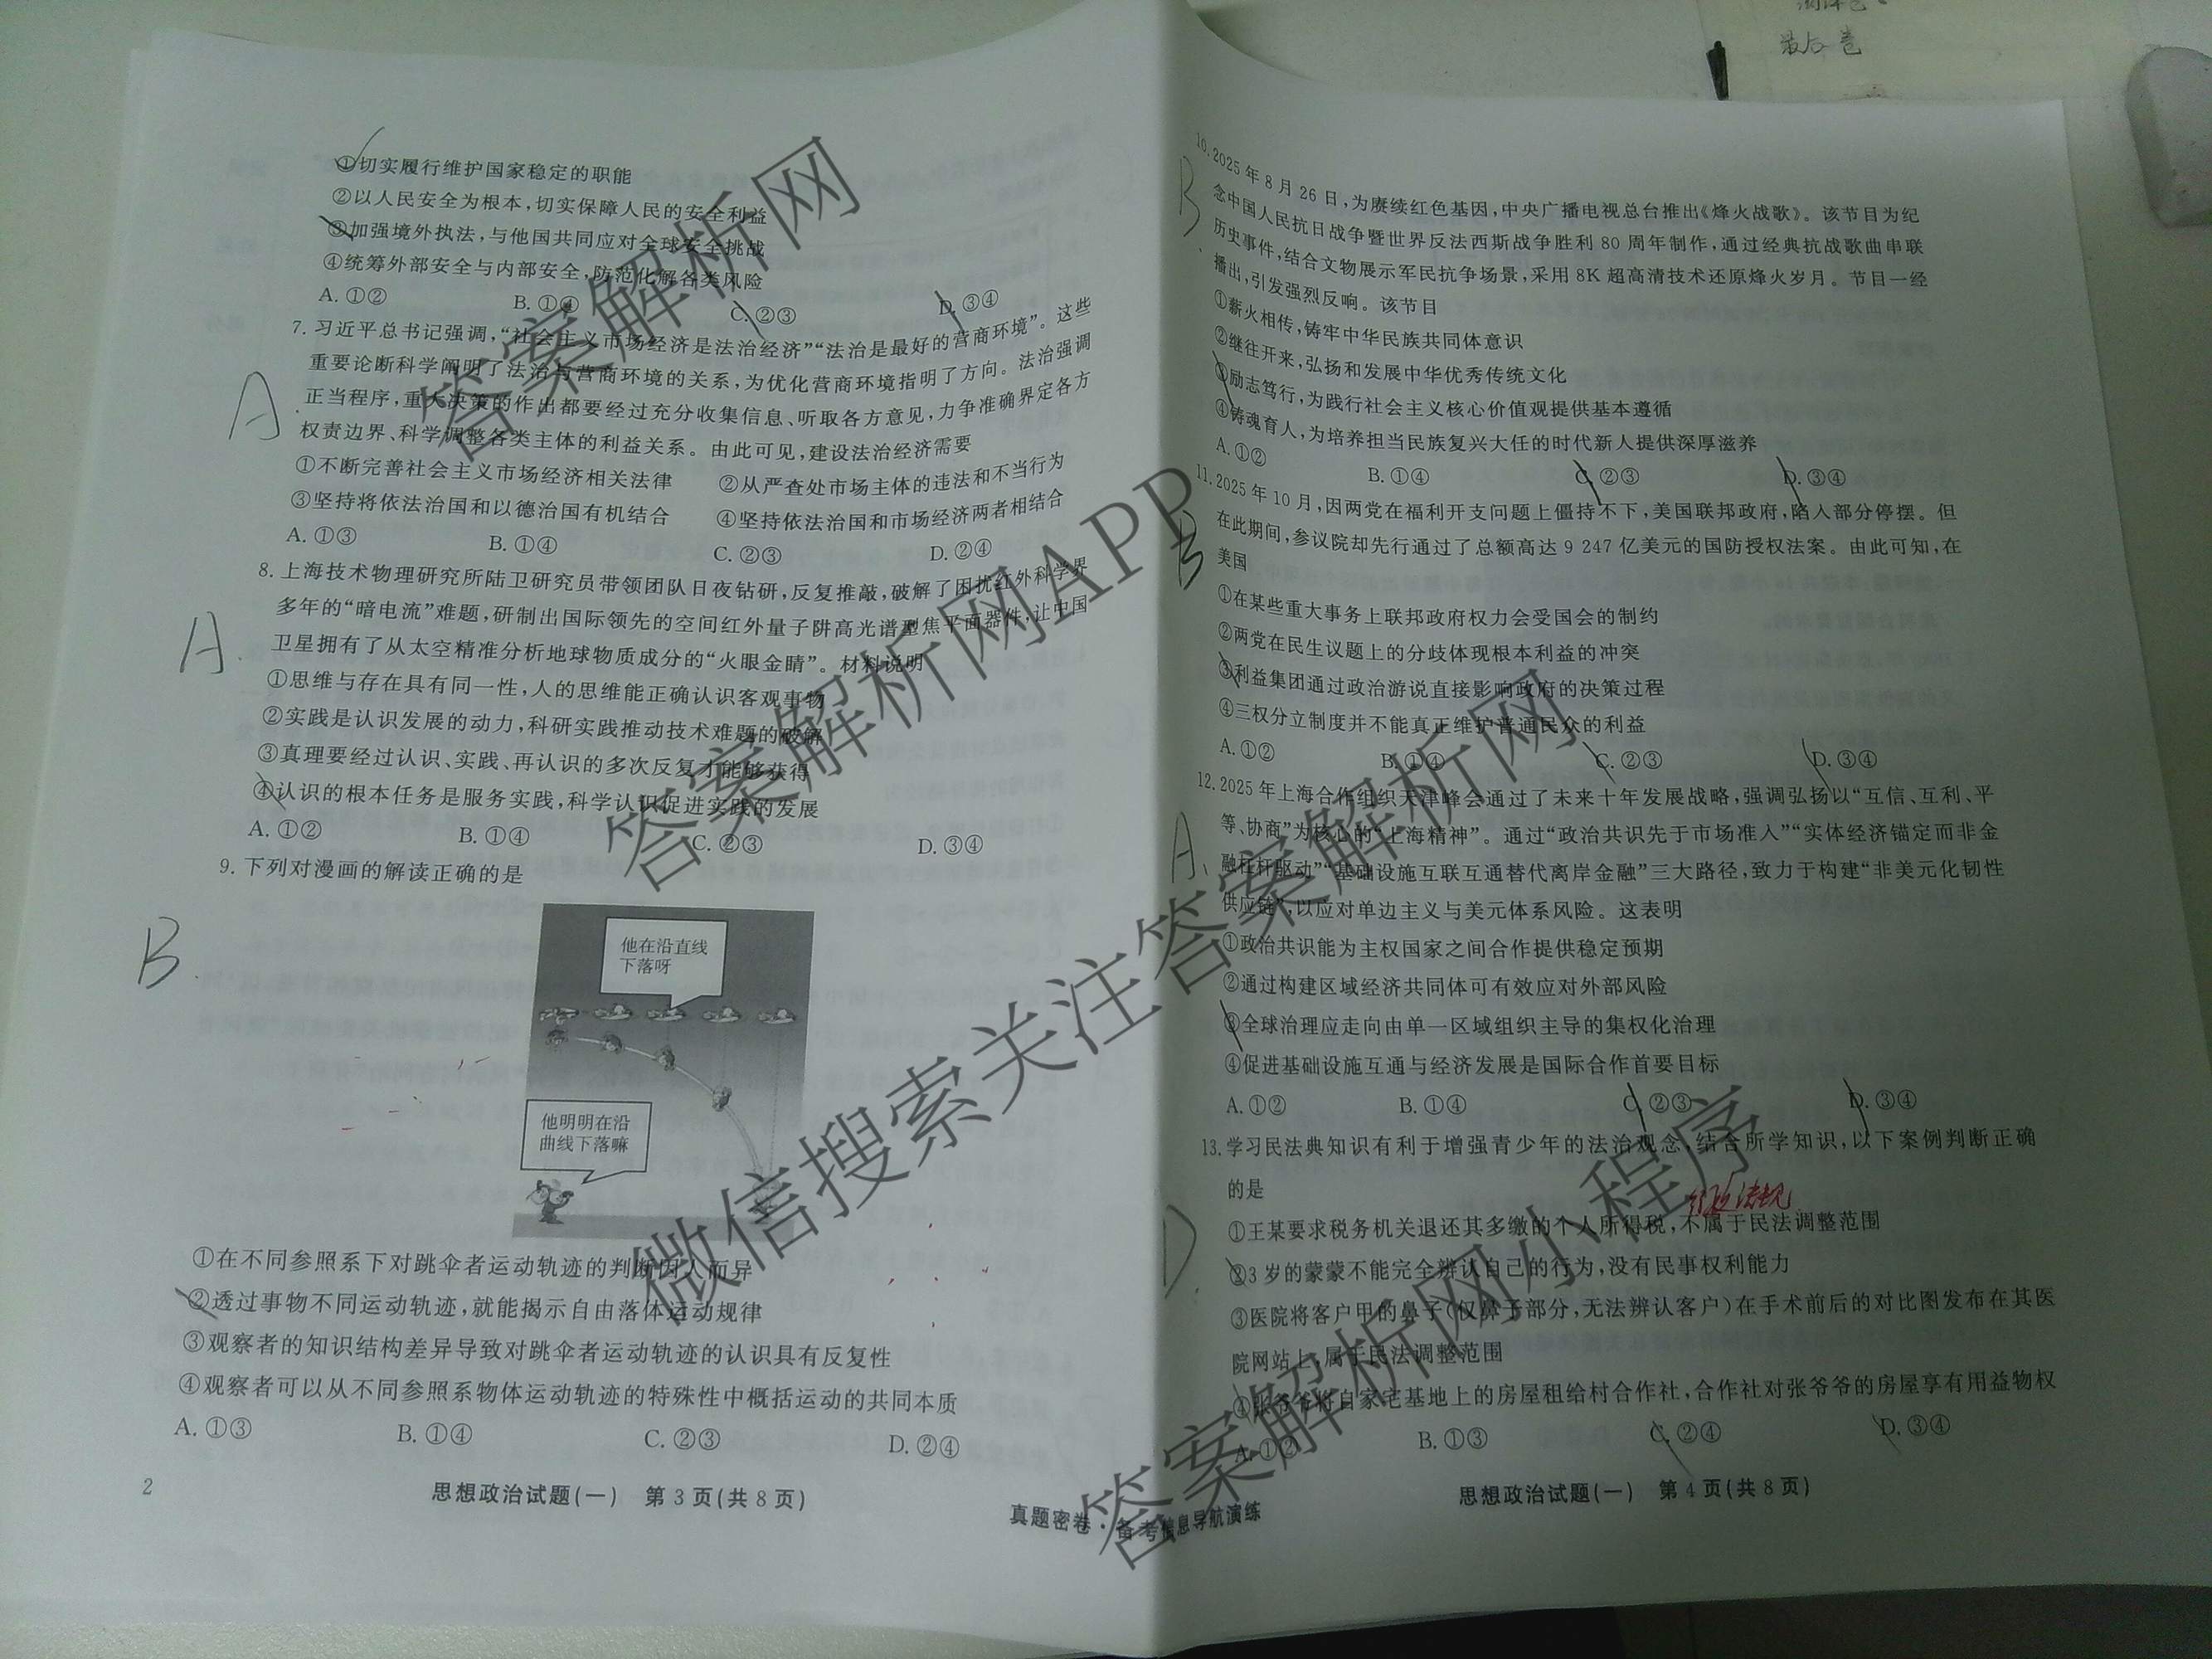 最后卷
①切实履行维护国家稳定的职能
②以人民安全为根本,切实保障人民的安全利益
③加强境外执法,与他国共同应对全球安全挑战
④统筹外部安全与内部安全,防范化解各类风险
A. ①② B. ①④ C. ②③ D. ③④
7. 习近平总书记强调,“社会主义市场经济是法治经济”“法治是最好的营商环境”。这些
重要论断科学阐明了法治与营商环境的关系,为优化营商环境指明了方向。法治强调
正当程序,重大决策的作出都要经过充分收集信息、听取各方意见,力争准确界定各方
权责边界、科学调整各类主体的利益关系。由此可见,建设法治经济需要
A
①不断完善社会主义市场经济相关法律 ②从严查处市场主体的违法和不当行为
③坚持将依法治国和以德治国有机结合 ④坚持依法治国和市场经济两者相结合
A. ①③ B. ①④ C. ②③ D. ②④
8. 上海技术物理研究所陆卫研究员带领团队日夜钻研,反复推敲,破解了困扰红外科学界
多年的“暗电流”难题,研制出国际领先的空间红外量子阱高光谱型焦平面器件,让中国
卫星拥有了从太空精准分析地球物质成分的“火眼金睛”。材料说明
A
①思维与存在具有同一性,人的思维能正确认识客观事物
②实践是认识发展的动力,科研实践推动技术难题的破解
③真理要经过认识、实践、再认识的多次反复才能够获得
④认识的根本任务是服务实践,科学认识促进实践的发展
A. ①② B. ①④ C. ②③ D. ③④
9. 下列对漫画的解读正确的是
B
他在沿直线
下落呀
他明明在沿
曲线下落嘛
①在不同参照系下对跳伞者运动轨迹的判断因人而异
②透过事物不同运动轨迹,就能揭示自由落体运动规律
③观察者的知识结构差异导致对跳伞者运动轨迹的认识具有反复性
④观察者可以从不同参照系物体运动轨迹的特殊性中概括运动的共同本质
A. ①③ B. ①④ C. ②③ D. ②④
2
思想政治试题(一) 第 3 页(共 8 页)
10. 2025 年 8 月 26 日,为赓续红色基因,中央广播电视总台推出《烽火战歌》。该节目为纪
念中国人民抗日战争暨世界反法西斯战争胜利 80 周年制作,通过经典抗战歌曲串联
历史事件,结合文物展示军民抗争场景,采用 8K 超高清技术还原烽火岁月。节目一经
播出,引发强烈反响。该节目
B
①薪火相传,铸牢中华民族共同体意识
②继往开来,弘扬和发展中华优秀传统文化
③励志笃行,为践行社会主义核心价值观提供基本遵循
④铸魂育人,为培养担当民族复兴大任的时代新人提供深厚滋养
A. ①② B. ①④ C. ②③ D. ③④
11. 2025 年 10 月,因两党在福利开支问题上僵持不下,美国联邦政府,陷入部分停摆。但
在此期间,参议院却先行通过了总额高达 9 247 亿美元的国防授权法案。由此可知,在
美国
B
①在某些重大事务上联邦政府权力会受国会的制约
②两党在民生议题上的分歧体现根本利益的冲突
③利益集团通过政治游说直接影响政府的决策过程
④三权分立制度并不能真正维护普通民众的利益
A. ①② B. ①④ C. ②③ D. ③④
12. 2025 年上海合作组织天津峰会通过了未来十年发展战略,强调弘扬以“互信、互利、平
等、协商”为核心的“上海精神”。通过“政治共识先于市场准入”“实体经济锚定而非金
融杠杆驱动”“基础设施互联互通替代离岸金融”三大路径,致力于构建“非美元化韧性
供应链”,以应对单边主义与美元体系风险。这表明
A
①政治共识能为主权国家之间合作提供稳定预期
②通过构建区域经济共同体可有效应对外部风险
③全球治理应走向由单一区域组织主导的集权化治理
④促进基础设施互通与经济发展是国际合作首要目标
A. ①② B. ①④ C. ②③ D. ③④
13. 学习民法典知识有利于增强青少年的法治观念,结合所学知识,以下案例判断正确
的是
D
行政法规
①王某要求税务机关退还其多缴的个人所得税,不属于民法调整范围
②3 岁的蒙蒙不能完全辨认自己的行为,没有民事权利能力
③医院将客户甲的鼻子(仅鼻子部分,无法辨认客户)在手术前后的对比图发布在其医
院网站上,属于民法调整范围
④张爷爷将自家宅基地上的房屋租给村合作社,合作社对张爷爷的房屋享有用益物权
A. ①② B. ①③ C. ②④ D. ③④
思想政治试题(一) 第 4 页(共 8 页)
真题密卷·备考信息导航演练
答案解析网
答案解析网APP
微信搜索关注答案解析网
答案解析网小程序